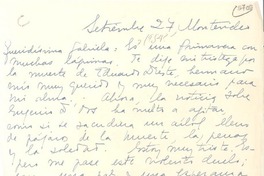 C
Setiembre 27, Montevideo
Queridísima Gabriela: Es una primavera con
muchas lágrimas. Te digo mi tristeza por
la muerte de Eduardo Dieste, hermano
mío muy querido y muy necesario para
mi alma. Ahora la noticia sobre
Eugenio d'Ors ha vuelto a
como si se sacudiera un árbol lleno
de pájaros de la muerte, la pena
y la soledad. Estoy muy triste.
pero me pasé este violento duelo;
una esperanza